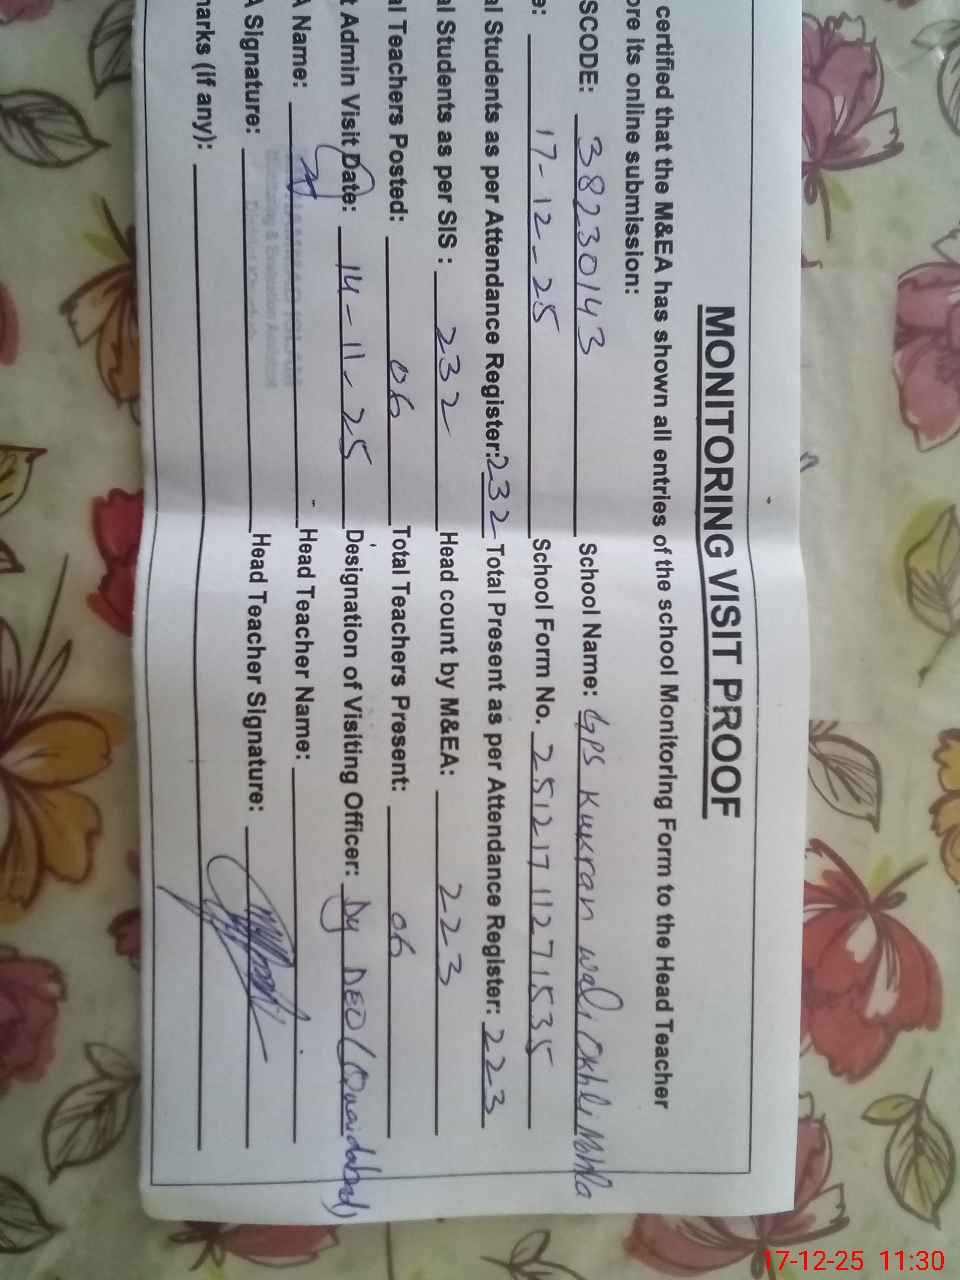 MONITORING VISIT PROOF
certified that the M&EA has shown all entries of the school Monitoring Form to the Head Teacher
ore its online submission:
SCODE: 38230143 School Name: GPS Kukran wali Okhli Mohla
e: 17-12-25 School Form No. 25121711271535
al Students as per Attendance Register: 232 Total Present as per Attendance Register: 223
al Students as per SIS : 232 Head count by M&EA: 223
al Teachers Posted: 06 Total Teachers Present: 06
t Admin Visit Date: 14-11-25 Designation of Visiting Officer: Dy DEO (Quaidabad)
A Name: Head Teacher Name:
Monitoring & Evaluation Assistant
A Signature: Head Teacher Signature:
narks (if any):
17-12-25 11:30